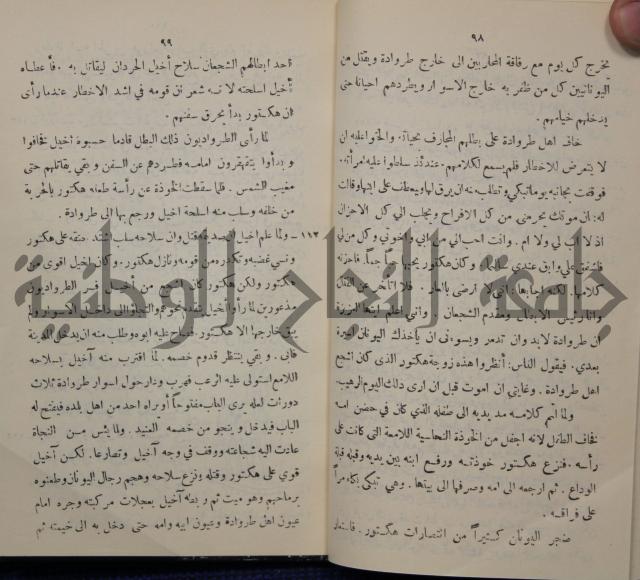 ٩٨
يخرج كل يوم مع رفاقة المحاربين الى خارج طروادة ويقتل من
اليونانيين كل من ظفر به خارج الاسوار ويطردهم احيانا حتى
يدخلهم خيامهم.
خاف اهل طروادة على بطلهم المجازف بحياته. والحوا عليه ان
لا يتعرض للاخطار فلم يسمع لكلامهم. عندئذ سلطوا عليه امرأته.
فوقفت بجانبه يوما تبكي وتطلب منه ان يرق لها ويعطف على ابنها وقالت
له: ان موتك يحرمني من كل الافراح ويجلب الي كل الاحزان
اذ لا اب لي ولا ام. وانت احب الي من ابي واخوتي وكل من لي
وكان هكتور يحبها حباً جماً. فاحزنه
كلامها. لكنه اجابها: اني لا ارضى بالعار. فلا اتأخر عن القتال
وانا رئيس الابطال ومقدم الشجعان. واني اعلم ايتها العزيزة
ان طروادة لا بد وان تدمر ويسوءني ان يأخذك اليونان اسيرة
بعدي. فيقول الناس: أنظروا هذه زوجة هكتور الذي كان اشجع
اهل طروادة. وغايتي ان اموت قبل ان ارى ذلك اليوم الرهيب.
ولما اتم كلامه مد يديه الى طفله الذي كان في حضن امه
فخاف الطفل لانه اجفل من الخوذة النحاسية اللامعة التي كانت على
رأسه. فنزع هكتور خوذته ورفع ابنه بين يديه وقبله قبلة
الوداع. ثم ارجعه الى امه وصرفها الى بيتها. وهي تبكي بكاء مراً
على فراقه.
ضجر اليونان كثيراً من انتصارات هكتور.
٩٩
احد ابطالهم الشجعان سلاح أخيل الحردان ليقاتل به. فأعطاه
أخيل اسلحته لانه شعر ان قومه في اشد الاخطار عندما رأى
ان هكتور بدأ يحرق سفنهم.
لما رأى الطرواديون ذلك البطل قادما حسبوه أخيل فخافوا
وبدأوا يتقهقرون امامه فطردهم عن السفن وبقي يقاتلهم حتى
مغيب الشمس. فلما سقطت الخوذة عن رأسه طعنه هكتور بالحربة
من خلفه وسلب منه اسلحة اخيل ورجع بها الى طروادة.
١١٣ - ولما علم اخيل ان صديقه قتل وان سلاحه سلب اشتد حنقه على هكتور
ونسي غضبه وتكدره من قومه ونازل هكتور. وكان اخيل اقوى من
هكتور ولكن هكتور كان اشجع من أخيل. فر الطرواديون
مذعورين لما رأوا أخيل يتقدم نحوهم والتجأوا الى داخل الاسوار ولم
يبق خارجها الا هكتور. فصاح عليه ابوه وطلب منه ان يدخل المدينة
فابى. وبقي ينتظر قدوم خصمه. لما اقترب منه أخيل بسلاحه
اللامع استولى عليه الرعب فهرب ودار حول اسوار طروادة ثلاث
دورات لعله يرى الباب مفتوحاً او يراه احد من اهل بلده فيفتح له
الباب فيدخل وينجو من خصمه العنيد. ولما يئس من النجاة
عادت اليه شجاعته ووقف في وجه أخيل وتصارعا. لكن أخيل
قوي على هكتور وقتله ونزع سلاحه وهجم رجال اليونان وطعنوه
برماحهم وهو ميت ثم ربطه أخيل بعجلات مركبته وجره امام
عيون اهل طروادة وعيون ابيه وامه حتى دخل به الى خيمته ثم
جامعة النجاح الوطنية